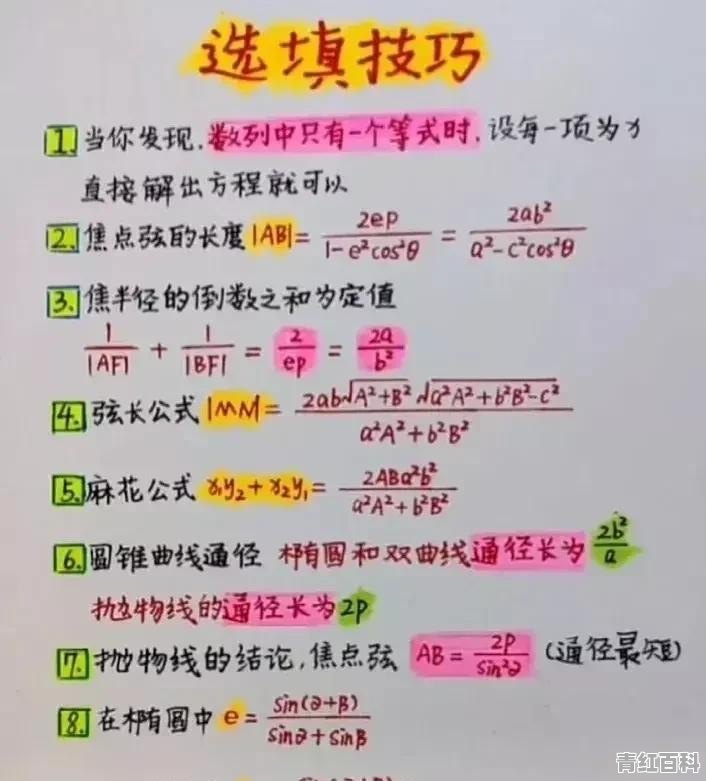 选填技巧
1. 当你发现,数列中只有一个等式时,设每一项为x
直接解出方程就可以
2. 焦点弦的长度|AB|= 2ep/(1-e²cos²θ) = 2ab²/(a²-c²cos²θ)
3. 焦半径的倒数之和为定值
1/|AF| + 1/|BF| = 2/ep = 2a/b²
4. 弦长公式|MN|= 2ab√(A²+B²)√(a²A²+b²B²-c²)/(a²A²+b²B²)
5. 麻花公式 x₁y₂+x₂y₁= 2ABa²b²/(a²A²+b²B²)
6. 圆锥曲线通径 椭圆和双曲线通径长为 2b²/a
抛物线的通径长为2p
7. 抛物线的结论,焦点弦 AB= 2p/sin²∂ (通径最短)
8. 在椭圆中 e= sin(∂+β)/(sin∂+sinβ)
青红百科